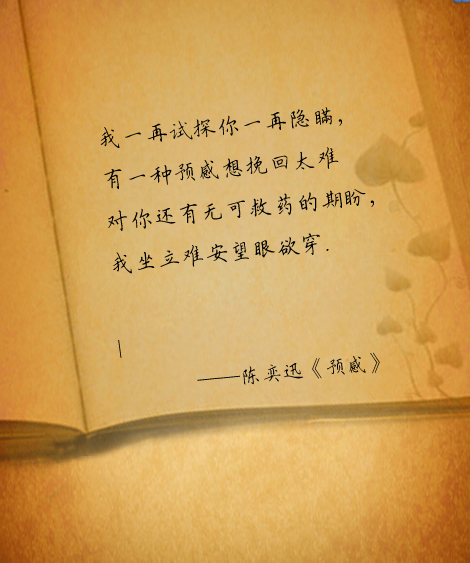 我一再试探你一再隐瞒，
有一种预感想挽回太难
对你还有无可救药的期盼，
我坐立难安望眼欲穿.
——陈奕迅《预感》